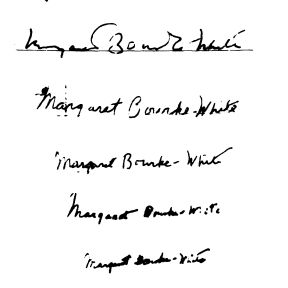 Margaret Bourke-White
Margaret Bourke-White
Margaret Bourke-White
Margaret Bourke-White
Margaret Bourke-White